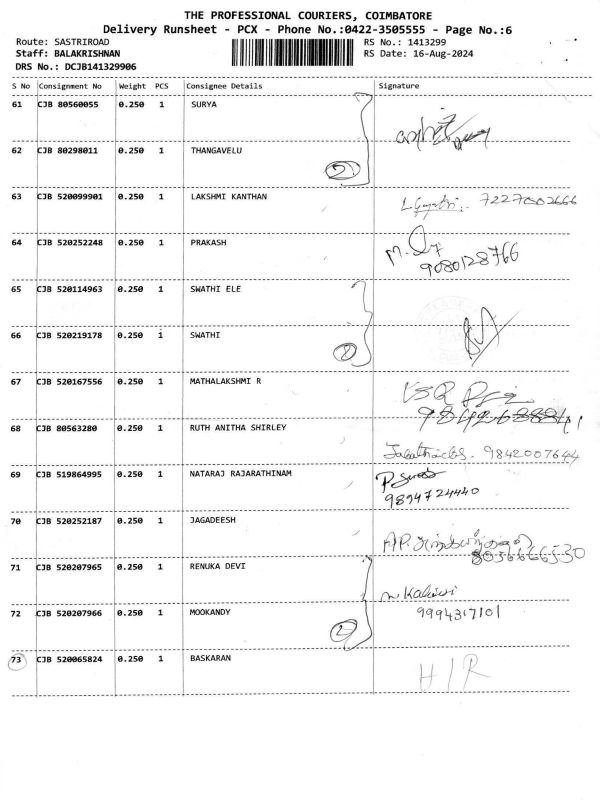 THE PROFESSIONAL COURIERS, COIMBATORE
Delivery Runsheet - PCX - Phone No.:0422-3505555 - Page No.:6
Route: SASTRIROAD RS No.: 1413299
Staff: BALAKRISHNAN RS Date: 16-Aug-2024
DRS No.: DCJB141329906
S No Consignment No Weight PCS Consignee Details Signature
61 CJB 80560055 0.250 1 SURYA
62 CJB 80298011 0.250 1 THANGAVELU
2
63 CJB 520099901 0.250 1 LAKSHMI KANTHAN
64 CJB 520252248 0.250 1 PRAKASH
9080128766
65 CJB 520114963 0.250 1 SWATHI ELE
66 CJB 520219178 0.250 1 SWATHI
67 CJB 520167556 0.250 1 MATHALAKSHMI R
68 CJB 80563280 0.250 1 RUTH ANITHA SHIRLEY
9842007644
69 CJB 519864995 0.250 1 NATARAJ RAJARATHINAM
9894724440
70 CJB 520252187 0.250 1 JAGADEESH
71 CJB 520207965 0.250 1 RENUKA DEVI
72 CJB 520207966 0.250 1 MOOKANDY
9994317101
2
73 CJB 520065824 0.250 1 BASKARAN
H/R